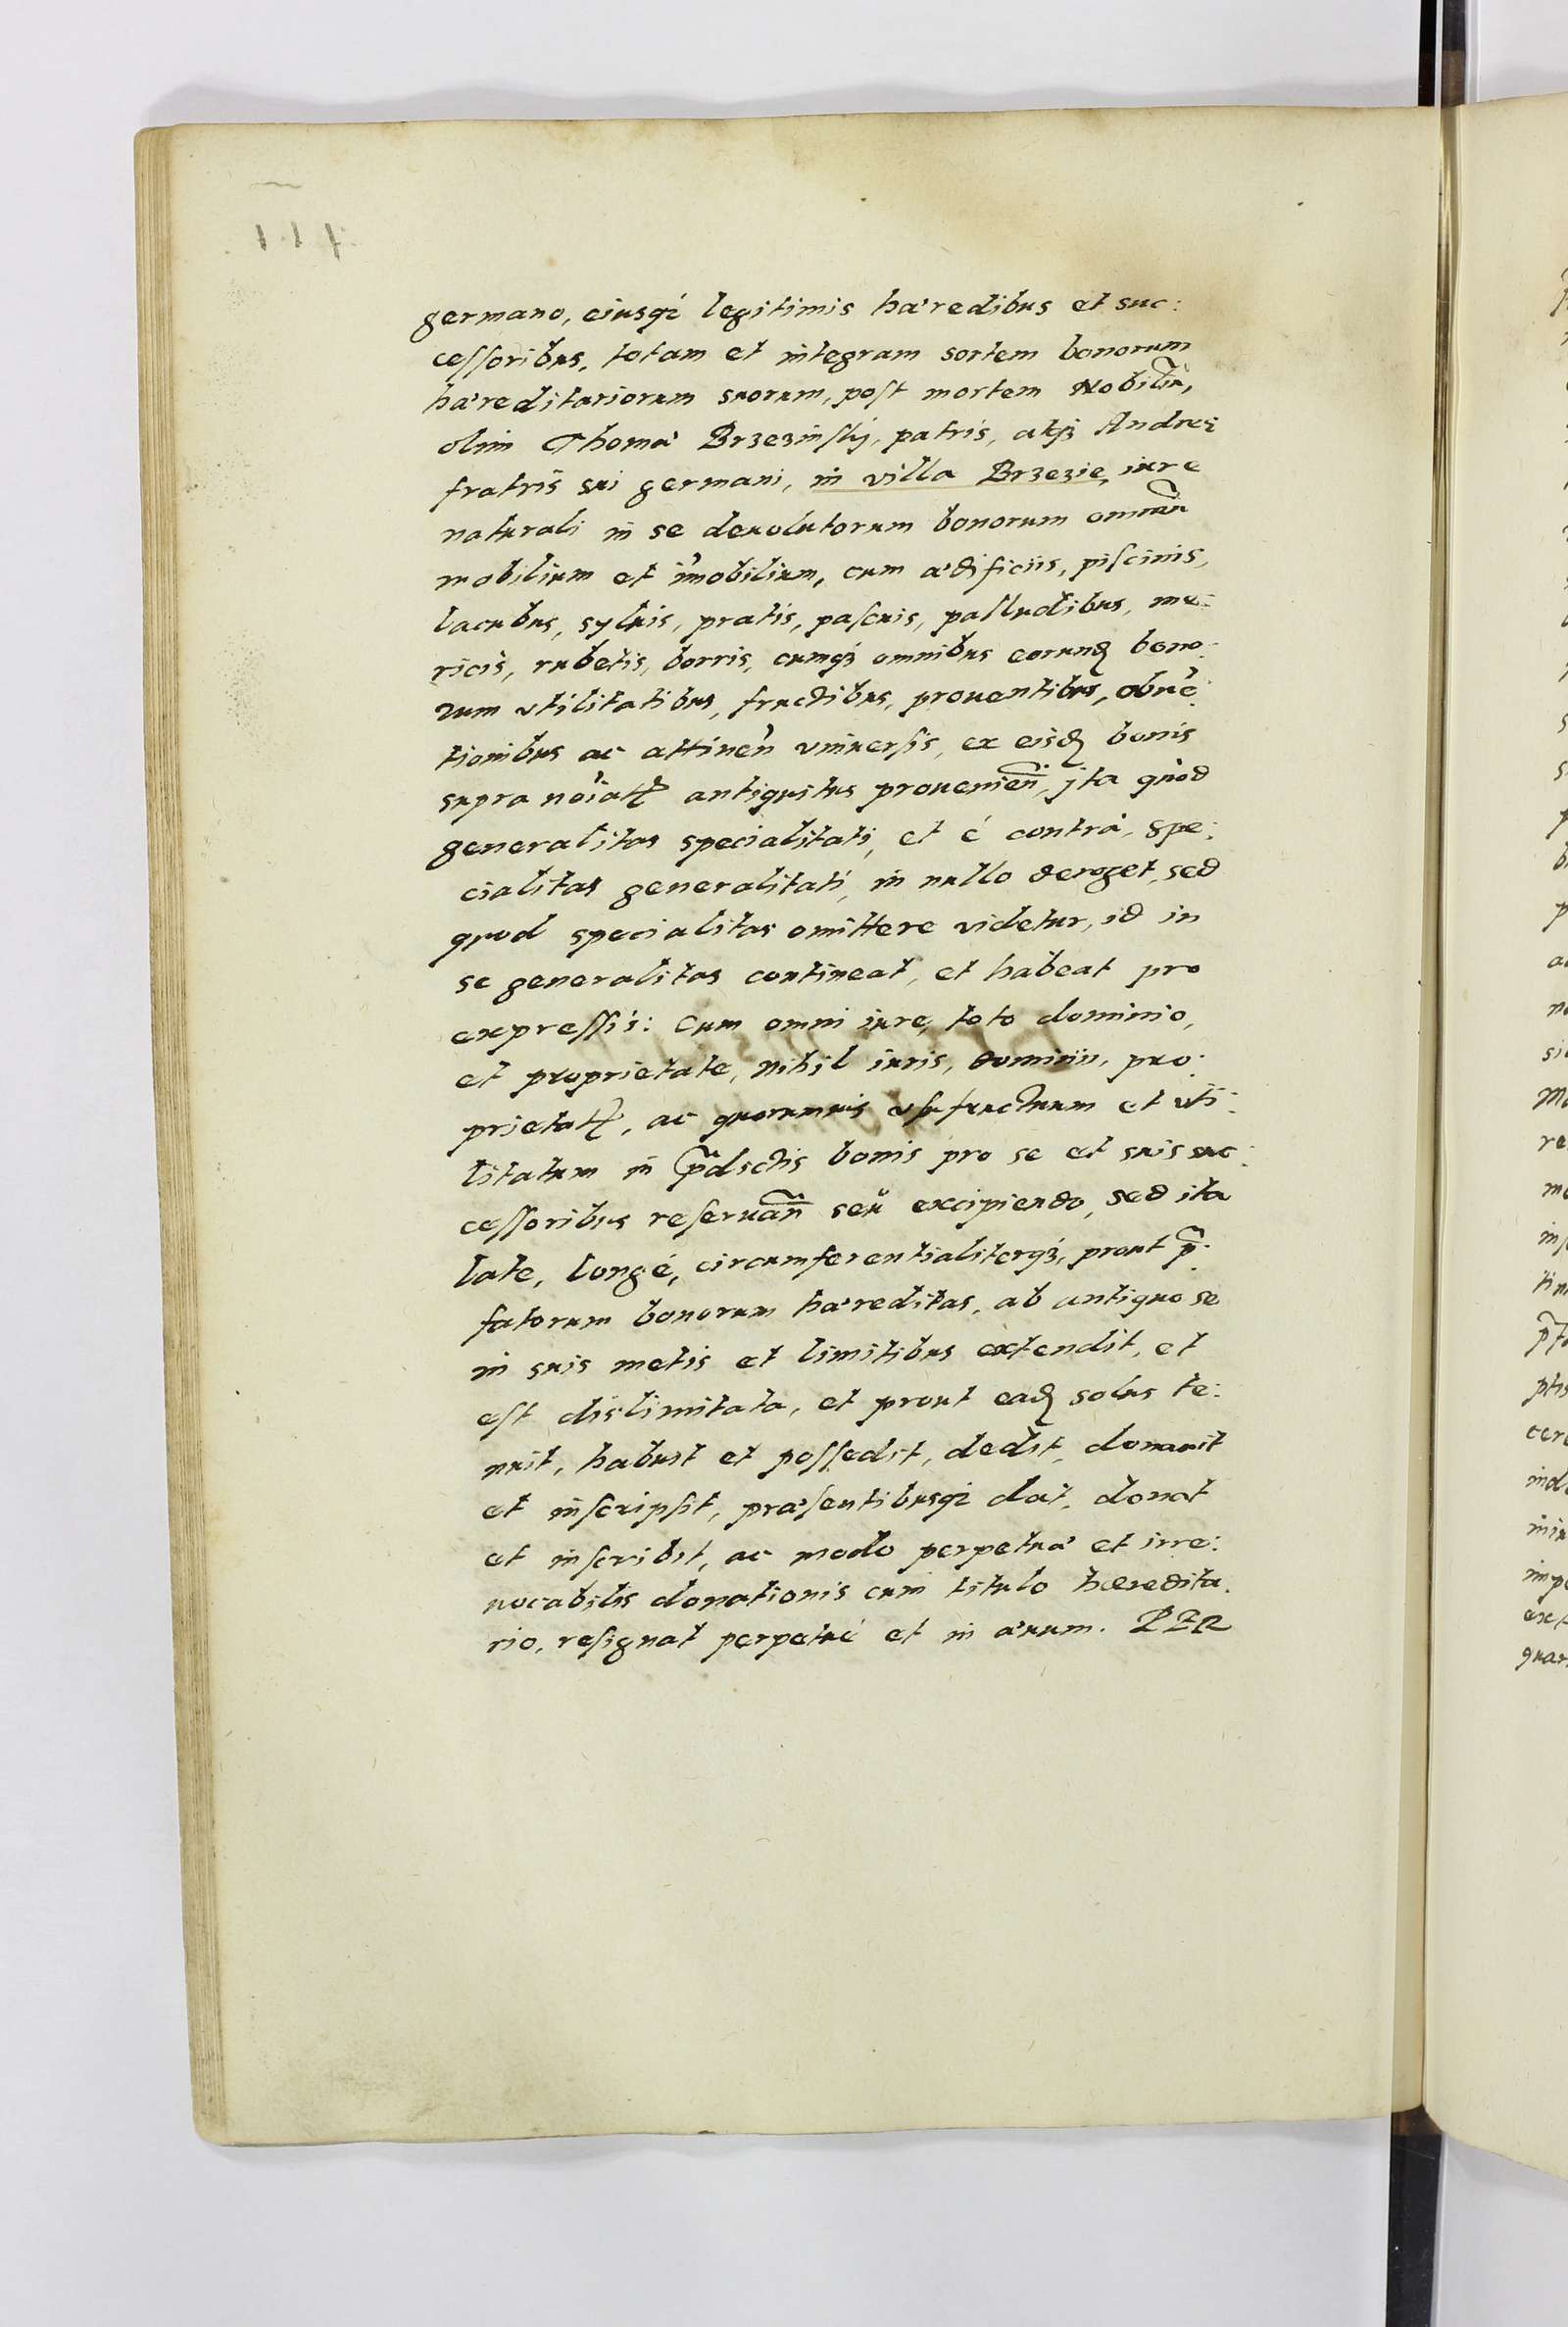 germano, eiusq́ȝ legitimis hæredibus et suc:
ceſſoribus, totam et integram sortem bonorum
hæreditariorum suorum, poſt mortem Nobiliũ,
olim Thomæ Brzezinſkj, patris, atqȝ Andreæ
fratris sui germani, in villa Brzezie, iure
naturali in se deuolutorum bonorum omniũ
mobilium et im̃obilium, cum ædificiis, piſcinis,
lacubus, syluis, pratis, paſcuis, palludibus, me:
ricis, rubetis, borris, cumqȝ omnibus eorund̃ bono:
rum vtilitatibus, fructibus, prouentibus, obuẽ:
tionibus ac attineñ vniuerſis, ex eisd̃ bonis
supra noiatꝭ antiquitus prouenieñ, jta quod
generalitas specialitati, et é contrà, spe:
cialitas generalitati, in nullo deroget, sed
quod specialitas omittere videtur, id in
se generalitas contineat, et habeat pro
expreſſis: Cum omni iure, toto dominio,
et proprietate, nihil iuris, dominii, pro:
prietatꝭ, ac quorumuis vſufructuum et vti:
litatum in p̃dictis bonis pro se et suis suc:
ceſſoribus reſeruañ seu excipiendo, sed ita
late, longé, circumferentialiterqȝ, prout p̃:
fatorum bonorum hæreditas, ab antiquo se
in suis metis et limitibus extendit, et
eſt dislimitata, et prout ead̃ solus te:
nuit, habuit et poſſedit, dedit, donauit
et inſcripſit, præſentibusqȝ dat, donat
et inſcribit, ac modo perpetuæ et irre:
uocabilis donationis cum titulo hæredita:
rio, reſignat perpetué et in æuum. PER